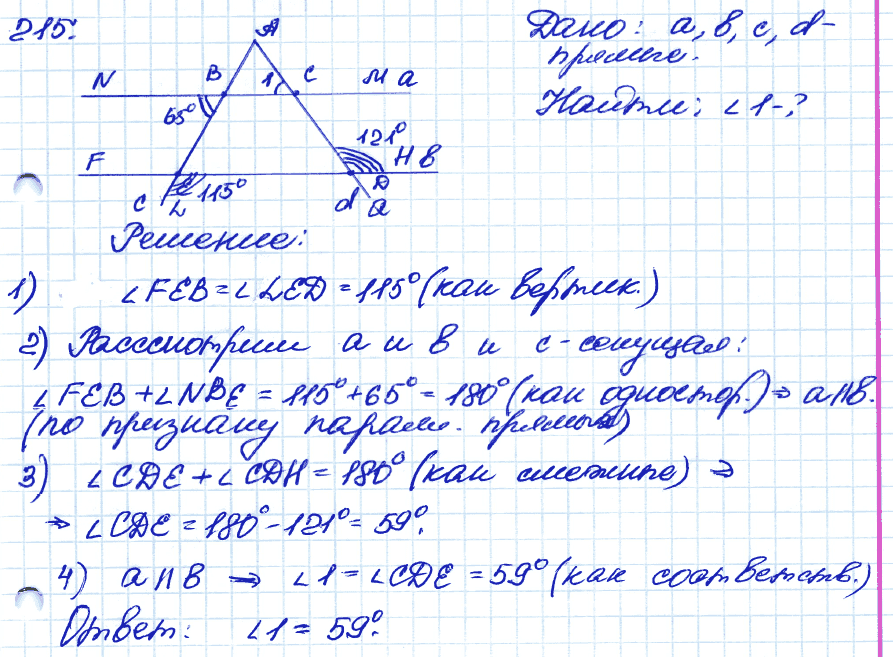 215.
Дано: a, b, c, d-
прямые.
Найти: ∠1-?
A
N B 1 C M a
65°
121°
F H b
115° D
C L d a
Решение:
1) ∠FEB = ∠LED = 115° (как вертик.)
2) Рассмотрим a и b и c - секущая:
∠FEB + ∠NBE = 115° + 65° = 180° (как одностор.) ⇒ a || b.
(по признаку паралл. прямых)
3) ∠CDE + ∠CDH = 180° (как смежные) ⇒
⇒ ∠CDE = 180° - 121° = 59°.
4) a || b ⇒ ∠1 = ∠CDE = 59° (как соответств.)
Ответ: ∠1 = 59°.